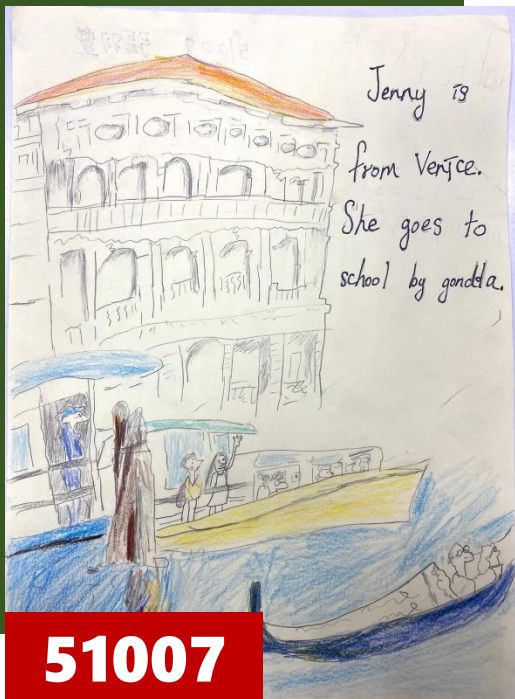 Jenny is
from Venice.
She goes to
school by gondola.
51007